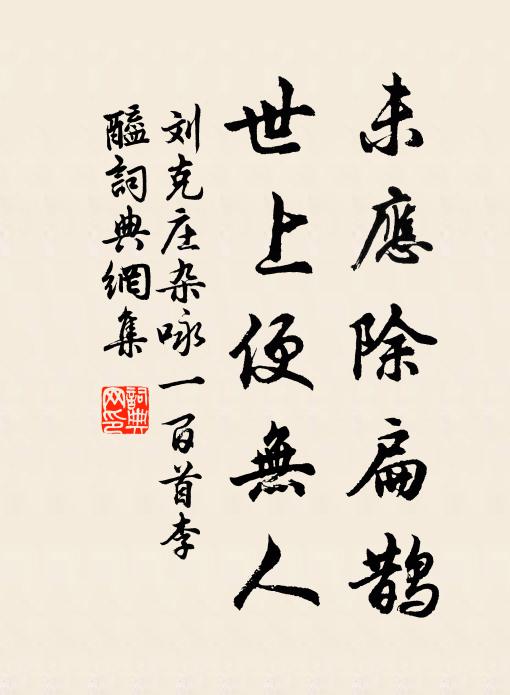 未應除扁鵲
世上便無人
刘克庄杂咏一百首李
醯詞典網集
詞典
网印